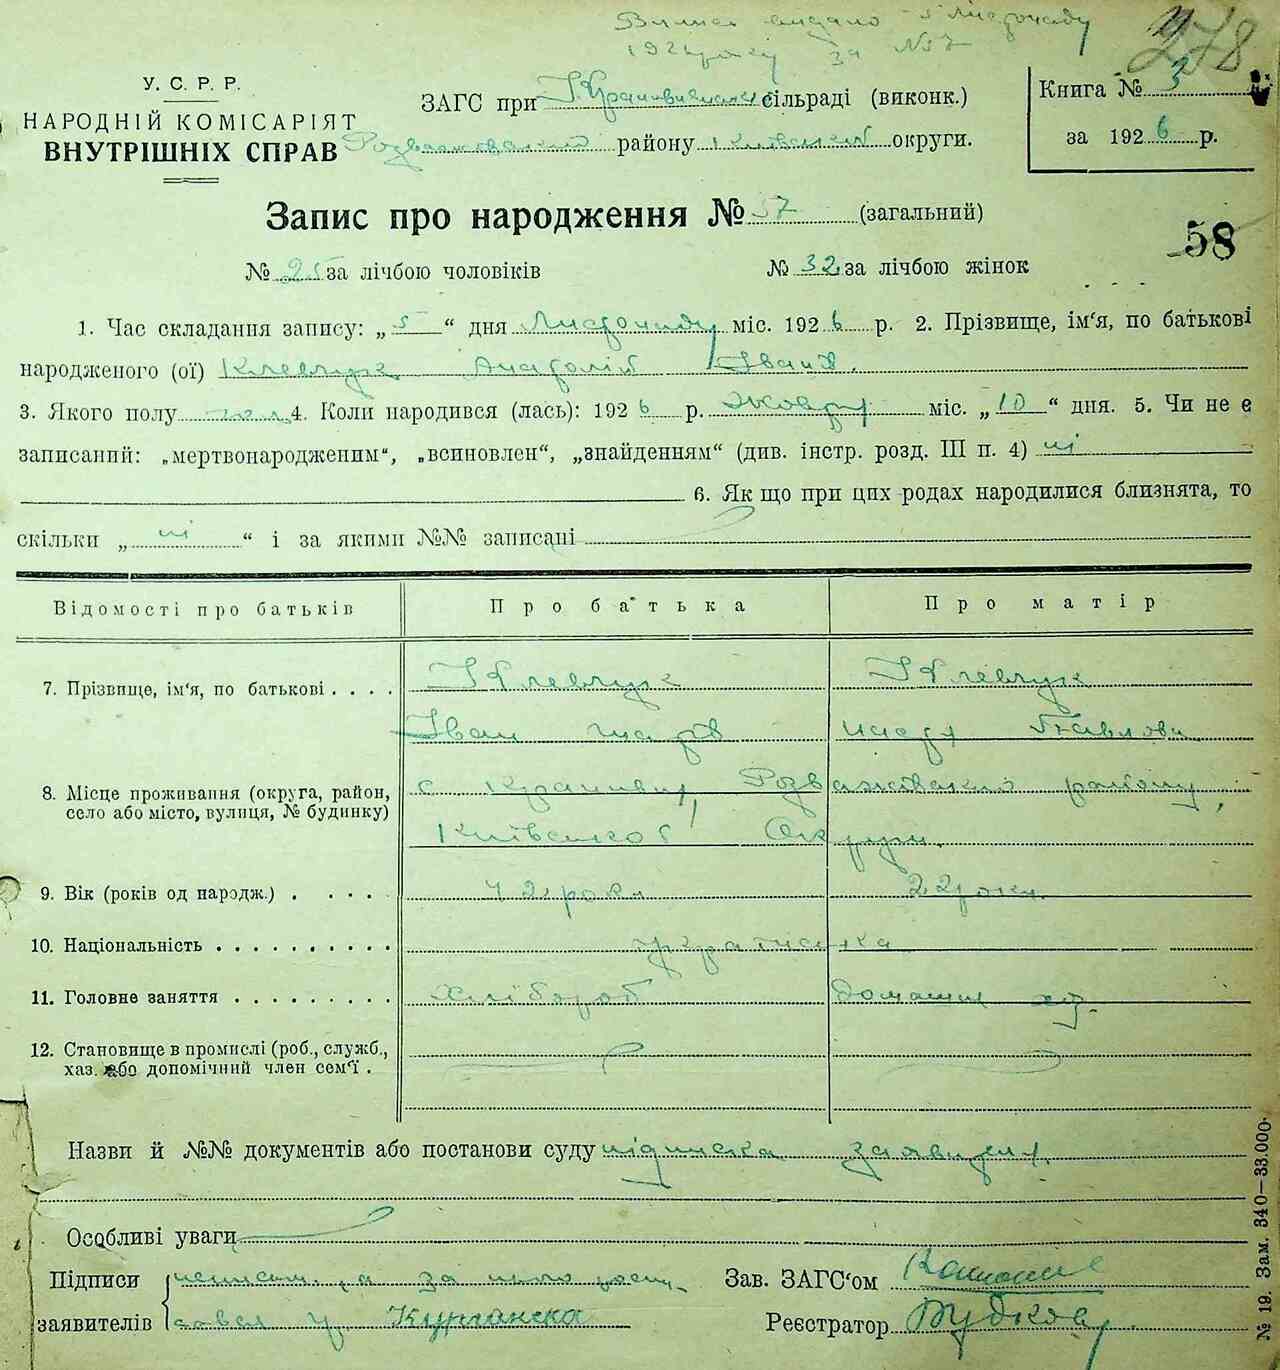 Випис видано 5 Листопаду
192 року за №57
278
У. С. Р. Р.
НАРОДНІЙ КОМІСАРІЯТ
ВНУТРІШНІХ СПРАВ
ЗАГС при сільраді (виконк.)
Розважівський району Київської округи.
Книга № 3
за 1926 р.
Запис про народження № 57 (загальний)
58
№ 25 за лічбою чоловіків № 32 за лічбою жінок
1. Час складання запису: „ 5 “ дня Листопаду міс. 1926 р. 2. Прізвище, ім‘я, по батькові
народженого (ої) Клевчук Анатолій Іванів.
3. Якого полу чол. 4. Коли народився (лась): 1926 р. Жовтня міс. „10“ дня. 5. Чи не є
записаний: „мертвонародженим“, „всиновлен“, „знайденням“ (див. інстр. розд. III п. 4) ні
6. Як що при цих родах народилися близнята, то
скільки „ ні “ і за якими №№ записані
Відомості про батьків Про батька Про матір
7. Прізвище, ім‘я, по батькові . . . . Клевчук Клевчук
Іван Настя Павлова
8. Місце проживання (округа, район, с. Розважівського району,
село або місто, вулиця, № будинку) Київської Округи.
9. Вік (років од народж.) . . . . 42 роки 22 роки
10. Національність . . . . . . . . . . українська
11. Головне заняття . . . . . . . . . Хлібороб домашн. хаз.
12. Становище в промислі (роб., служб.,
хаз. або допомічний член сем‘ї .
Назви й №№ документів або постанови суду підписка заявителя.
Особливі уваги
Підписи неписьм. а за нього розпи-
заявителів Курганска
Зав. ЗАГС‘ом
Реєстратор
№ 19. Зам. 340—33.000.